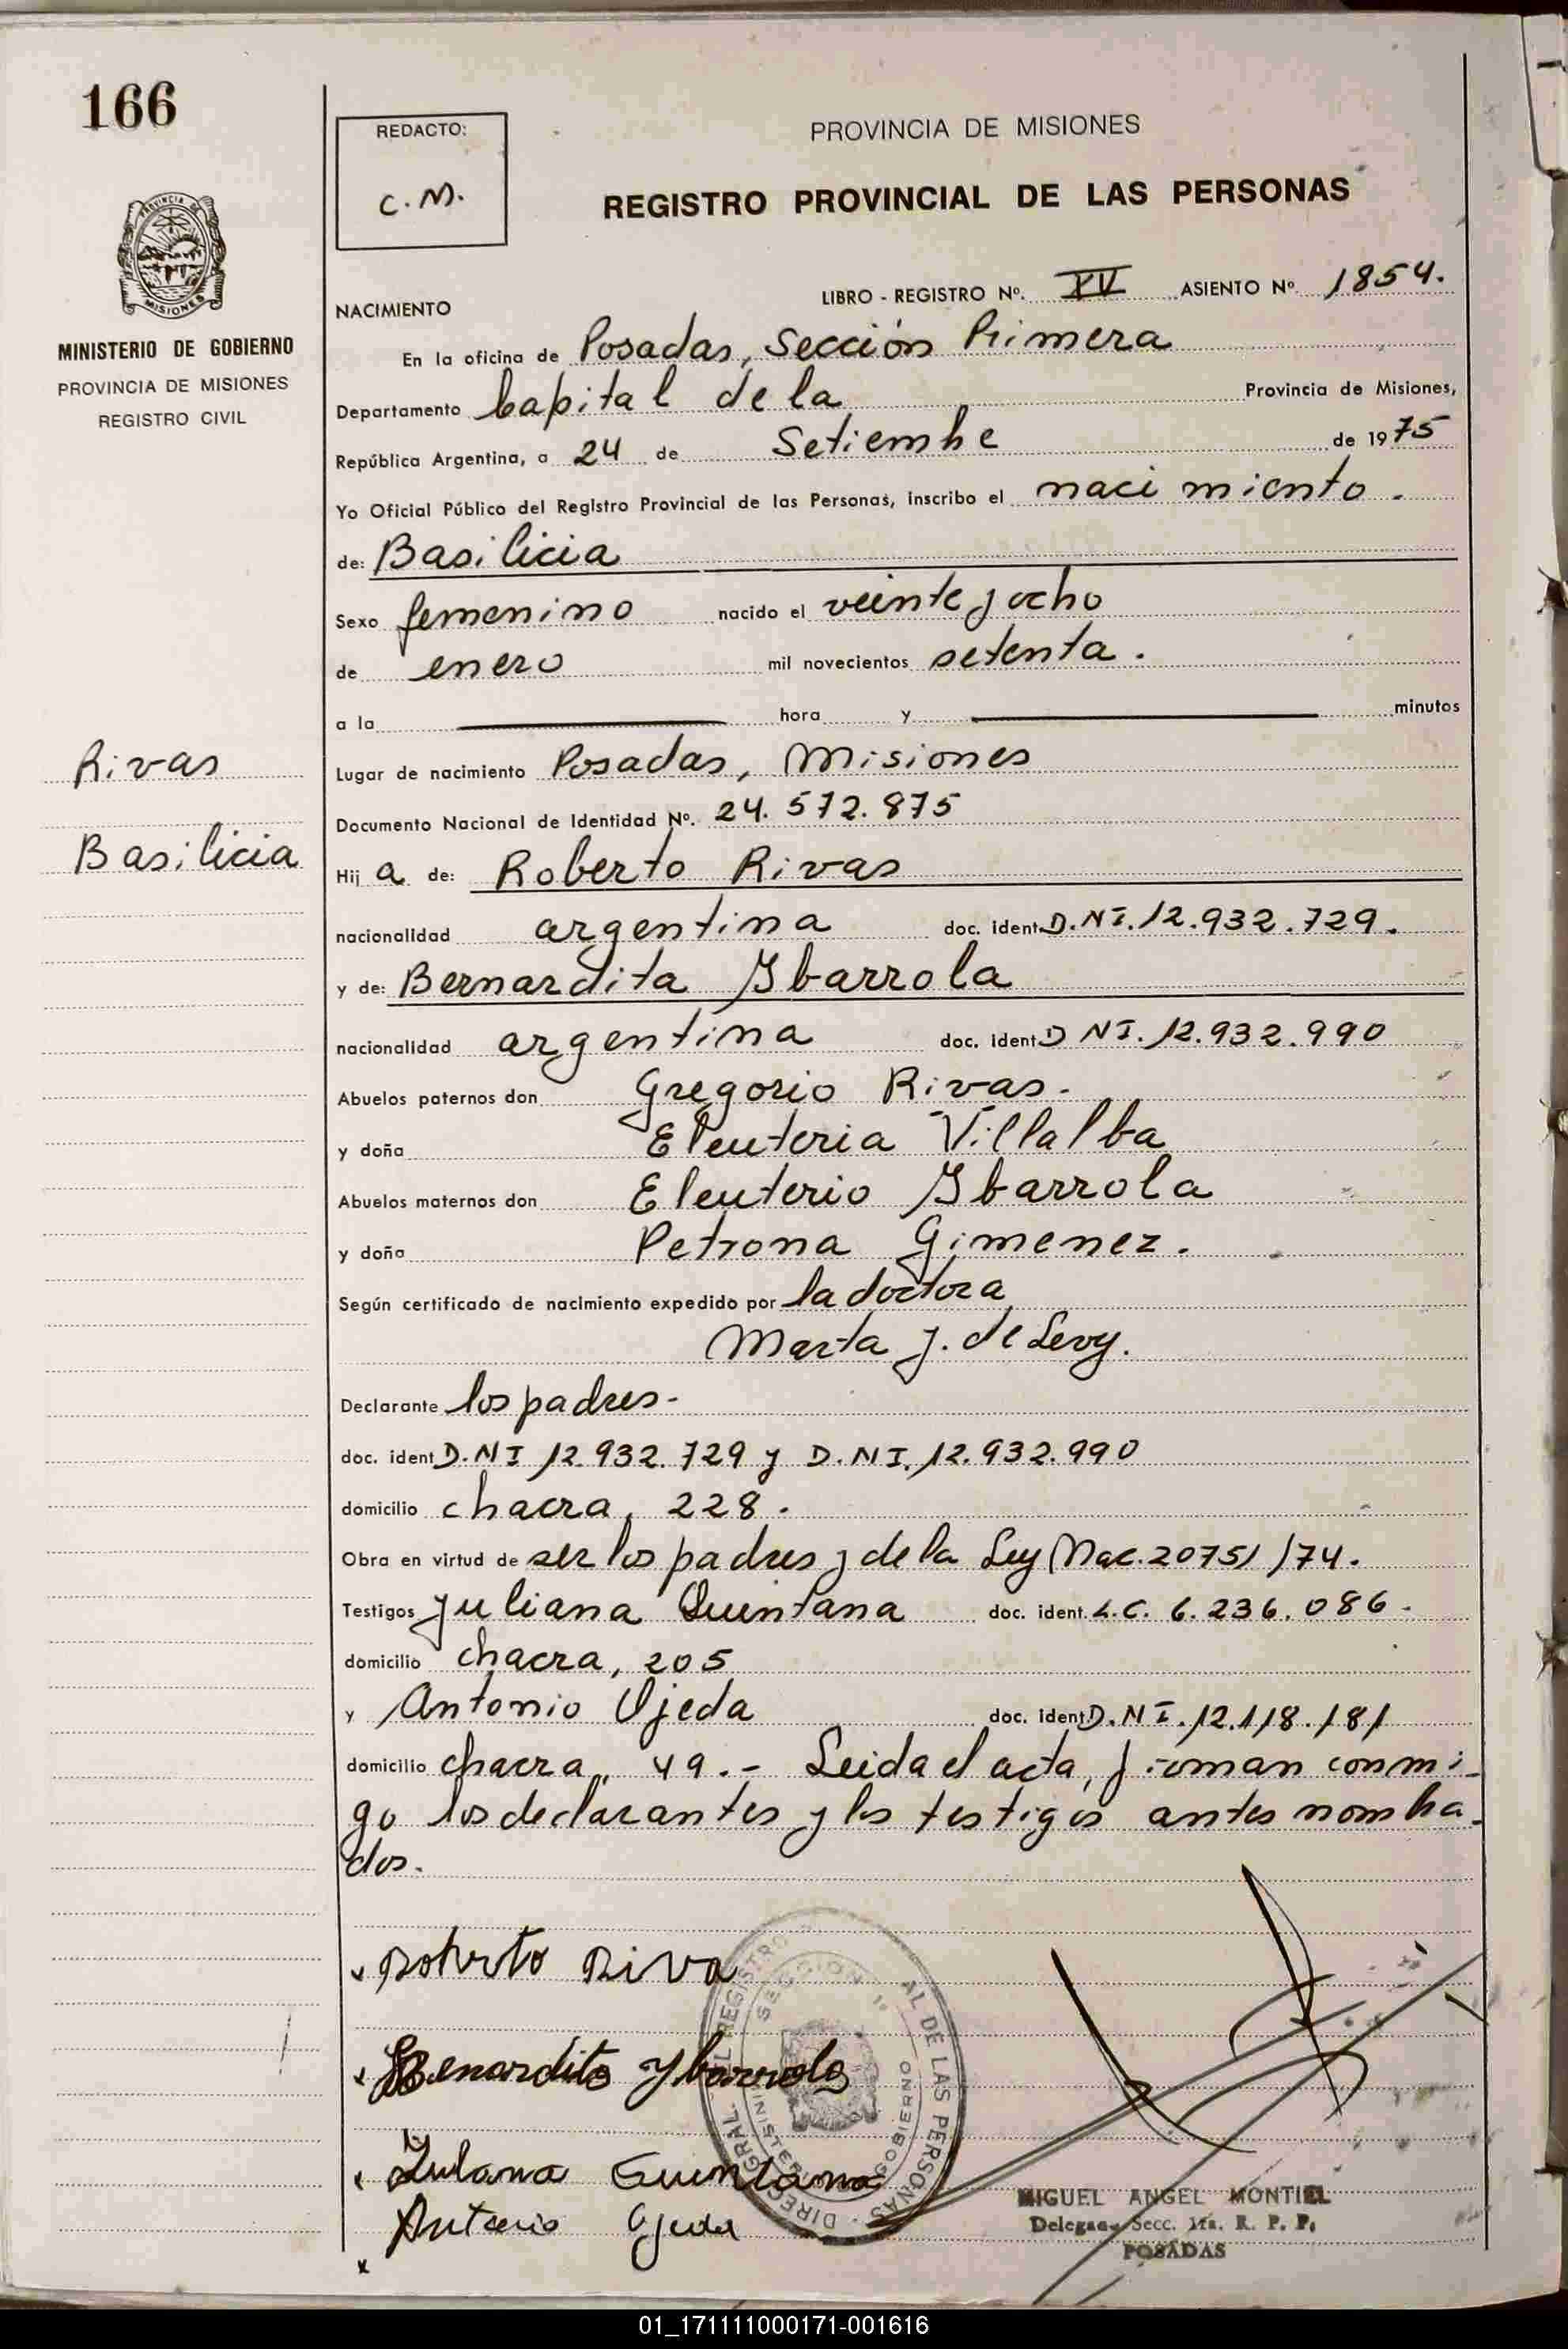 166
REDACTO:
C.M.
PROVINCIA DE MISIONES
REGISTRO PROVINCIAL DE LAS PERSONAS
PROVINCIA DE
MISIONES
MINISTERIO DE GOBIERNO
PROVINCIA DE MISIONES
REGISTRO CIVIL
LIBRO - REGISTRO Nº. XV ASIENTO Nº 1854.
NACIMIENTO
En la oficina de Posadas, Sección Primera
Departamento Capital de la Provincia de Misiones,
República Argentina, a 24 de Setiembre de 1975
Yo Oficial Público del Registro Provincial de las Personas, inscribo el nacimiento.
de: Basilicia
Sexo femenino nacido el veinte y ocho
de enero mil novecientos setenta.
a la hora y minutos
Rivas
Lugar de nacimiento Posadas, Misiones
Documento Nacional de Identidad Nº. 24.572.875
Basilicia
Hij a de: Roberto Rivas
nacionalidad argentina doc. ident D.NI.12.932.729.
y de: Bernardita Ybarrola
nacionalidad argentina doc. ident D NI.12.932.990
Abuelos paternos don Gregorio Rivas.
y doña Eleuteria Villalba
Abuelos maternos don Eleuterio Ybarrola
y doña Petrona Gimenez.
Según certificado de nacimiento expedido por la doctora
Marta J. de Levy.
Declarante los padres-
doc. ident D.NI 12.932.729 y D.NI.12.932.990
domicilio chacra, 228.
Obra en virtud de ser los padres y de la Ley Nac.20751/74.
Testigos Juliana Quintana doc. ident. L.C. 6.236.086.
domicilio chacra, 205
y Antonio Ojeda doc. ident D.NI.12.118.181
domicilio chacra, 49.- Leida el acta, firman conmi-
go los declarantes y los testigos antes nombra-
dos.
Roberto Riva
Benardita Ybarrola
Juliana Quintana
Antonio Ojeda
SECCION 1ª
AL DE LAS PERSONAS
GOBIERNO
MIGUEL ANGEL MONTIEL
Delegado Secc. 1ra. R. P. P.
POSADAS
01_171111000171-001616